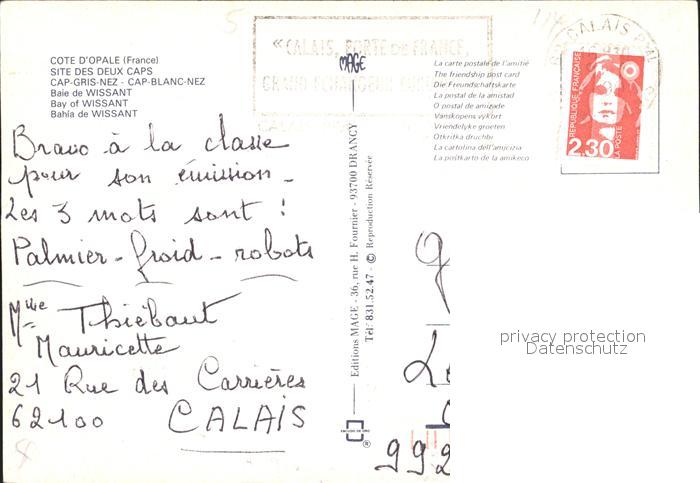 COTE D'OPALE (France)
SITE DES DEUX CAPS
CAP-GRIS-NEZ - CAP-BLANC-NEZ
Baie de WISSANT
Bay of WISSANT
Bahía de WISSANT
Bravo à la classe
pour son émission_
Les 3 mots sont :
Palmier - froid - robots
Mlle Thiébaut
Mauricette
21 Rue des Carrières
62100 CALAIS
« CALAIS, PORTE DE FRANCE,
MAGE
Editions MAGE - 36, rue H. Fournier - 93700 DRANCY
Tél: 831.52.47 - © Reproduction Réservée
La carte postale de l'amitié
The friendship post card
Die Freundschaftskarte
La postal de la amistad
O postal de amizade
Vanskopens vykort
Vriendelyke groeten
Otkritka druchbi
La cartolina dell'amicizia
La postkarto de la amikeco
CALAIS
REPUBLIQUE FRANÇAISE
2,30
LA POSTE
992
privacy protection
Datenschutz